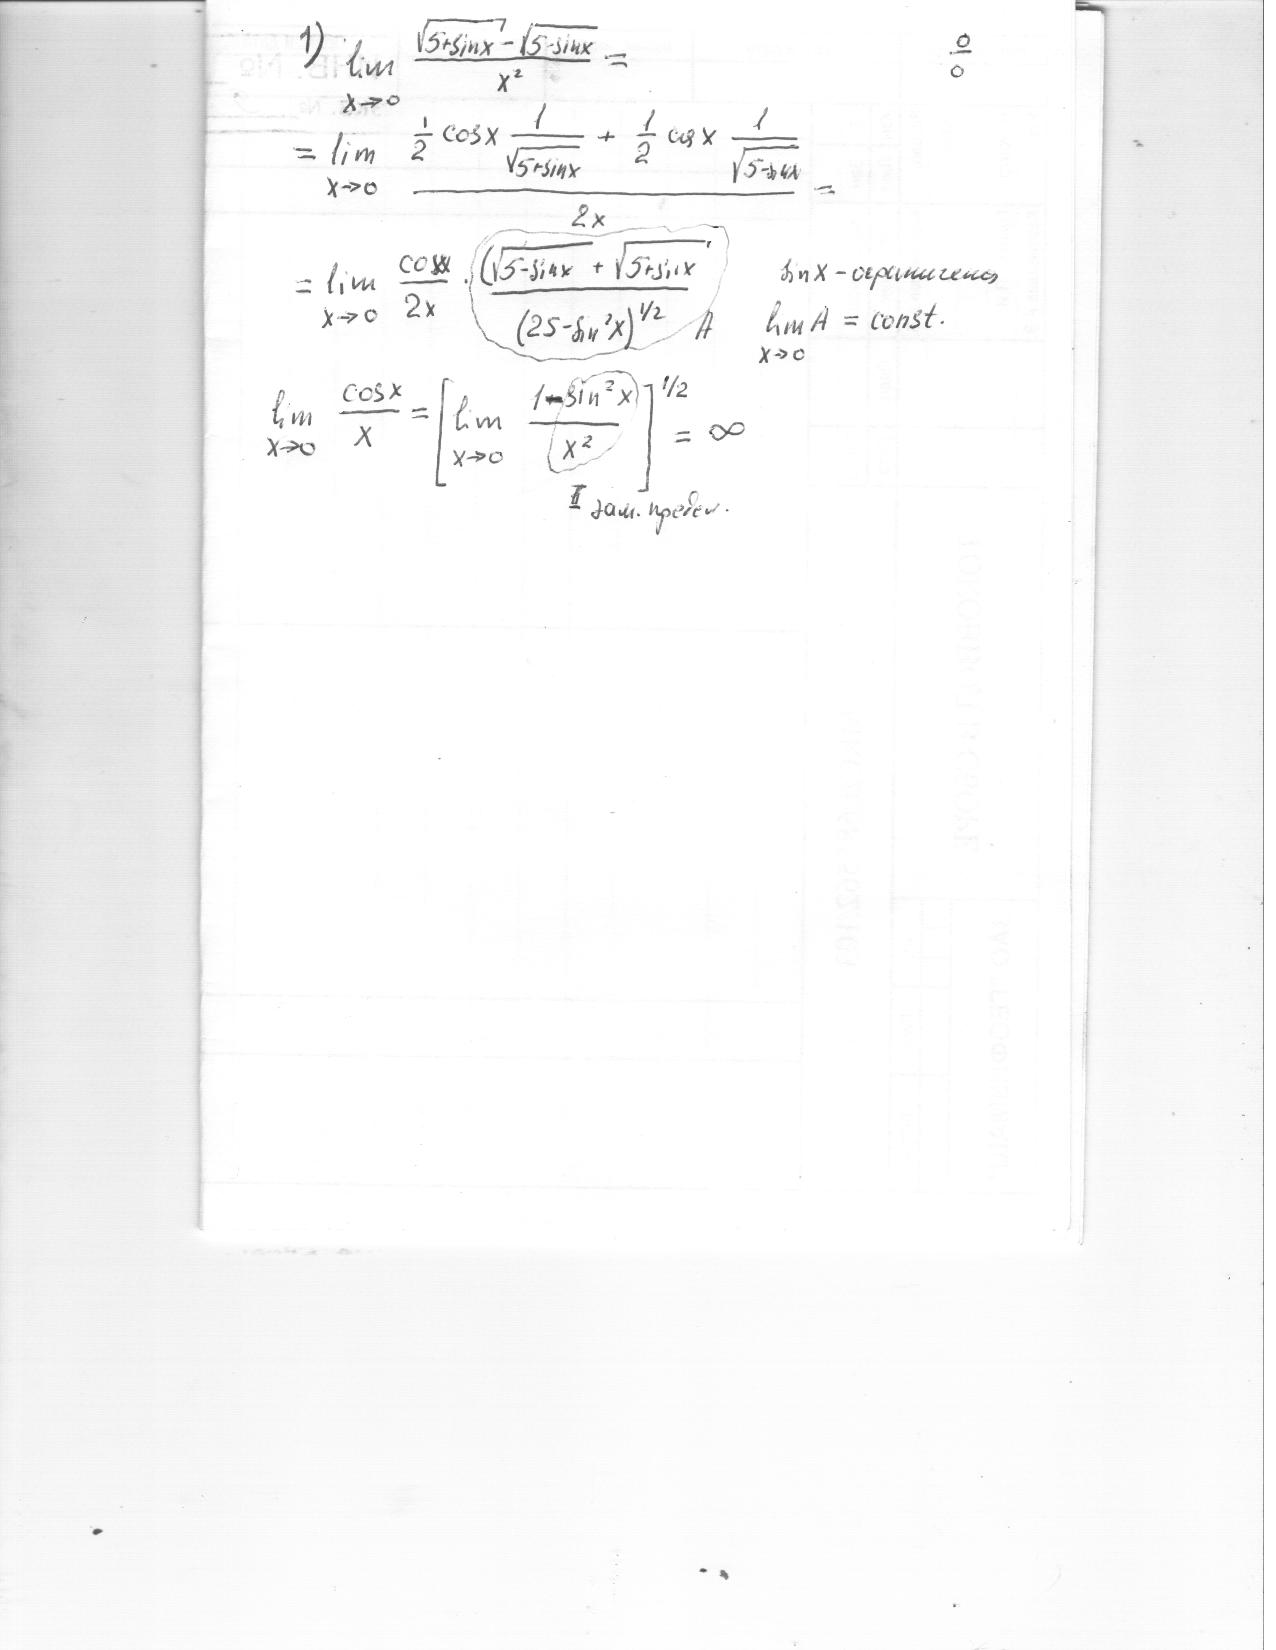 1) lim x→0 (√(5+sinx) − √(5−sinx)) / x² = 0/0
= lim x→0 (1/2 cosx 1/√(5+sinx) + 1/2 cosx 1/√(5−sinx)) / 2x =
= lim x→0 cosx/2x · (√(5−sinx) + √(5+sinx)) / (25−sin²x)^1/2 A sinx – ограничена
lim x→0 A = const.
lim x→0 cosx/x = [lim x→0 (1−sin²x)/x²]^1/2 = ∞
II зам. предел.